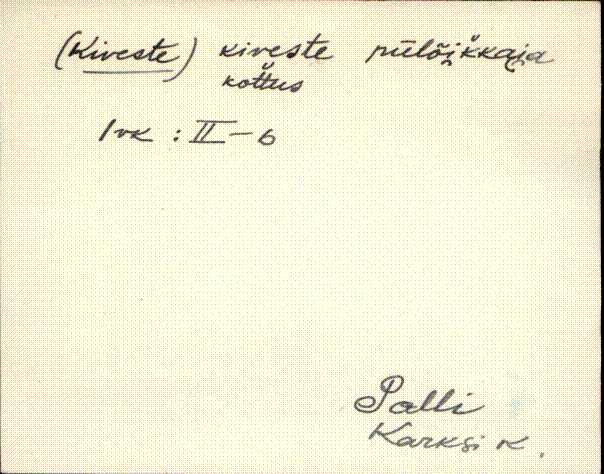 (Kiveste) kiveste pülõikkaja
kottus
Ivk : II - 6
Palli
Karksi K.